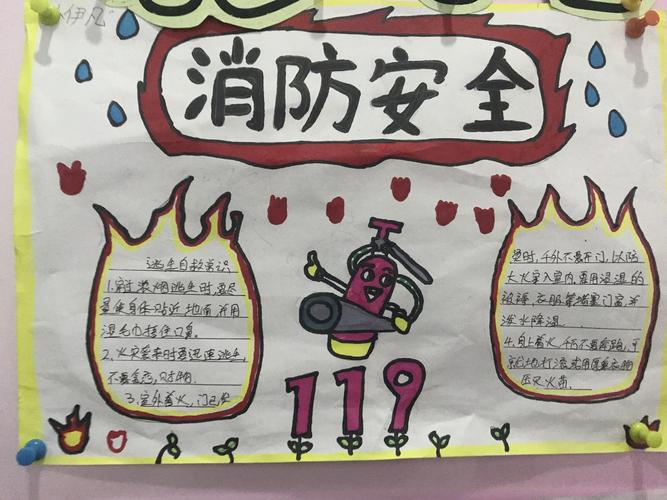 伊凡
消防安全
逃生自救常识
1.穿浓烟逃生时,要尽
量使身体贴近地面,并用
湿毛巾捂住口鼻。
2.火灾袭来时要迅速逃生,
不要贪恋,财物.
3.室外着火,门已发
烫时,千万不要开门,以防
大火窜入室内,要用浸湿的
被褥、衣服等堵塞门窗,并
泼水降温.
4.身上着火,千万不要奔跑,可
就地打滚或用厚重衣物
压灭火苗.
119